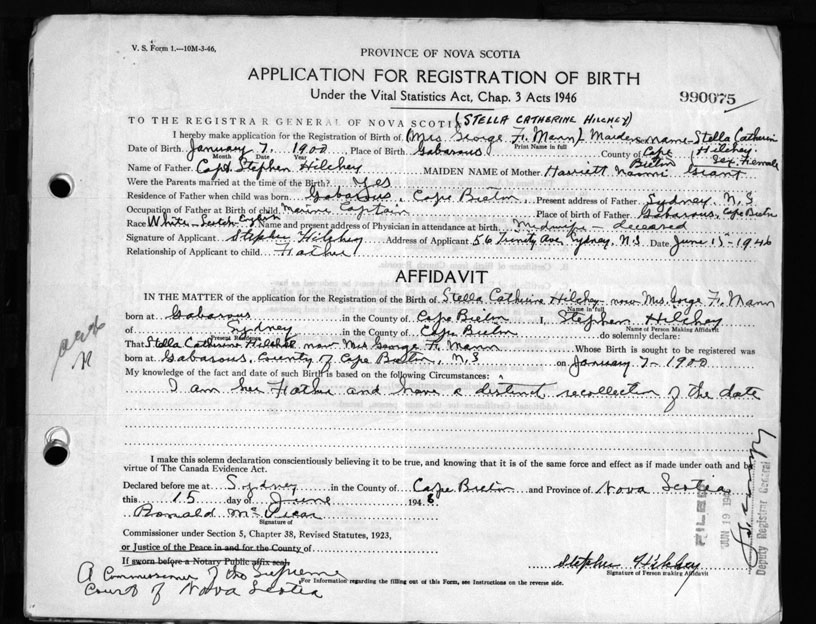 V. S. Form 1.—10M-3-46,
PROVINCE OF NOVA SCOTIA
APPLICATION FOR REGISTRATION OF BIRTH
Under the Vital Statistics Act, Chap. 3 Acts 1946
990075
TO THE REGISTRAR GENERAL OF NOVA SCOTIA (STELLA CATHERINE HILCHEY)
I hereby make application for the Registration of Birth of Mrs George H. Mann Maiden name Stella Catherin
Print Name in full
Date of Birth January 7. 1900 Place of Birth Gabarous County of Cape Breton Hilchey Sex. Female
Month Date Year
Name of Father Capt. Stephen Hilchey MAIDEN NAME of Mother Harriett Grant
Were the Parents married at the time of the Birth? Yes
Residence of Father when child was born Gabarous, Cape Breton Present address of Father Sydney N.S
Occupation of Father at Birth of child Marine Captain Place of birth of Father Gabarous, Cape Breton
Race White Name and present address of Physician in attendance at birth Midwife - deceased
Signature of Applicant Stephen Hilchey Address of Applicant 56 Trinity Ave Sydney, N.S Date June 15-1946
Relationship of Applicant to child Father
AFFIDAVIT
IN THE MATTER of the application for the Registration of the Birth of Stella Catherine Hilchey now Mrs. George H. Mann
Name in full
born at Gabarous in the County of Cape Breton I, Stephen Hilchey
Name of Person Making Affidavit
of Sydney in the County of Cape Breton do solemnly declare:
Present Residence
That Stella Catherine Hilchey now Mrs George H. Mann Whose Birth is sought to be registered was
born at Gabarous, County of Cape Breton, N.S on January 7- 1900
My knowledge of the fact and date of such Birth is based on the following Circumstances:
I am her Father and have a distinct recollection of the date
I make this solemn declaration conscientiously believing it to be true, and knowing that it is of the same force and effect as if made under oath and by
virtue of The Canada Evidence Act.
Declared before me at Sydney in the County of Cape Breton and Province of Nova Scotia
this 15 day of June 1946
Ronald Mc
Signature of
Commissioner under Section 5, Chapter 38, Revised Statutes, 1923,
or Justice of the Peace in and for the County of
If sworn before a Notary Public affix seal.
A Commissioner of the Supreme
Court of Nova Scotia
Stephen Hilchey
Signature of Person making Affidavit
For Information regarding the filling out of this Form, see Instructions on the reverse side.
FILED
JUN 19
Deputy Registrar General